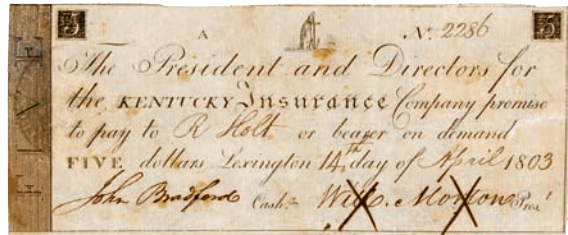 5 A No. 2286 5
FIVE
The President and Directors for
the KENTUCKY Insurance Company promise
to pay to R Holt or bearer on demand
FIVE dollars Lexington 14th day of April 1803
John Bradford Cash.r Will. Morton Prest